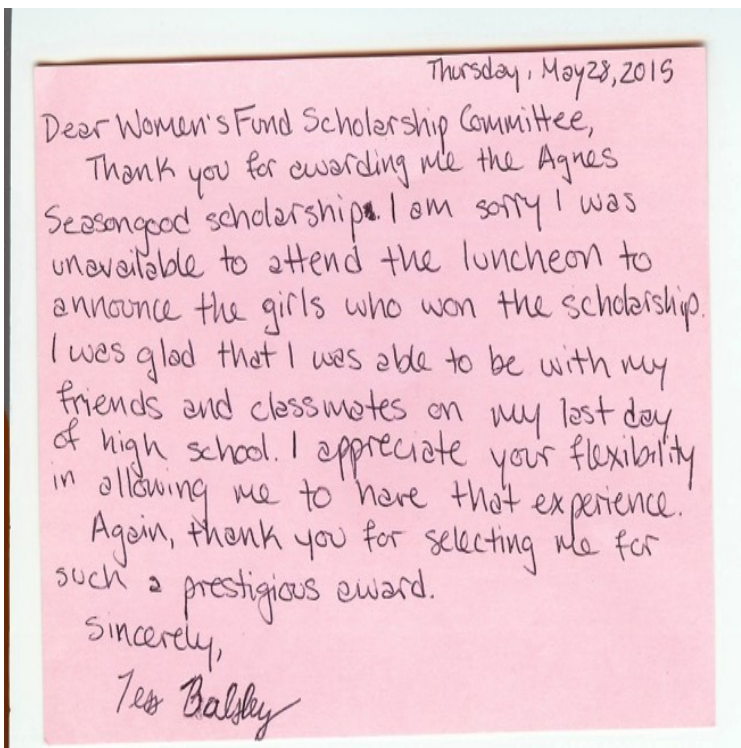 Thursday, May 28, 2015
Dear Women's Fund Scholarship Committee,
Thank you for awarding me the Agnes
Seasongood scholarship. I am sorry I was
unavailable to attend the luncheon to
announce the girls who won the scholarship.
I was glad that I was able to be with my
friends and classmates on my last day
of high school. I appreciate your flexibility
in allowing me to have that experience.
Again, thank you for selecting me for
such a prestigious award.
Sincerely,
Tess Balsley